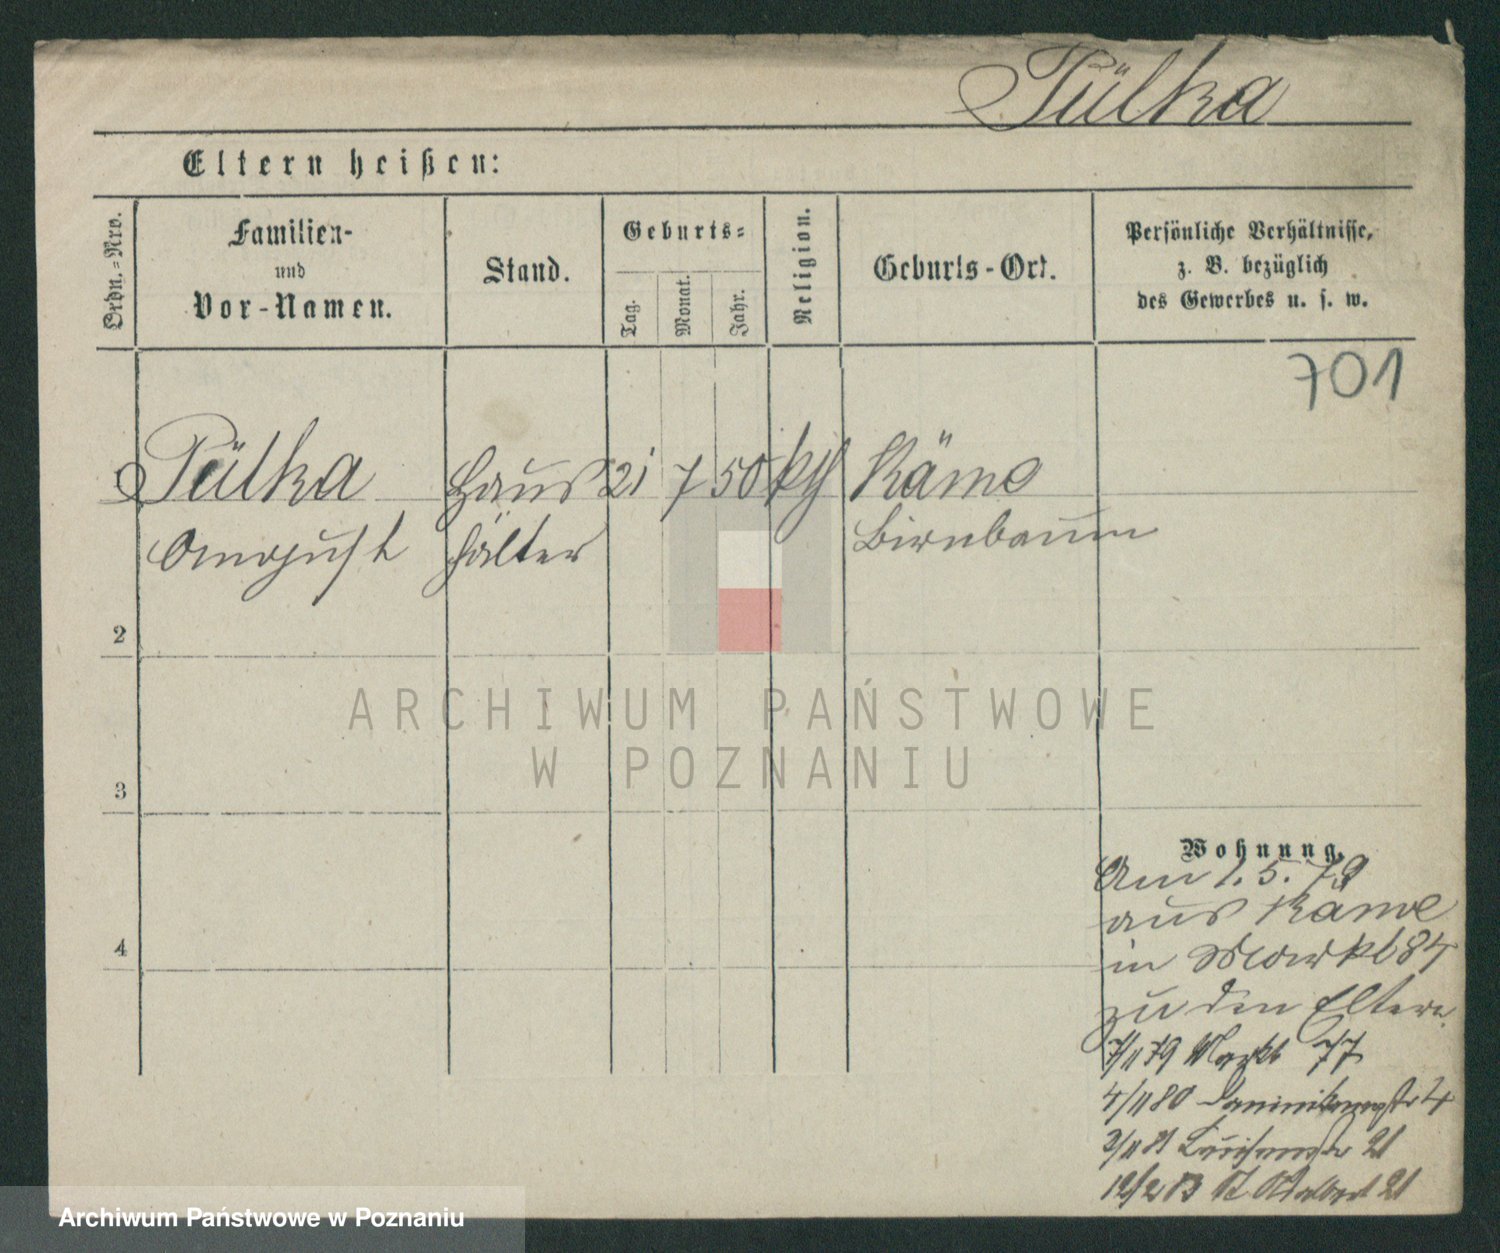 Pülka
Eltern heißen:
Ordn.=Nro.
Familien-
und
Vor-Namen.
Stand.
Geburts=
Tag.
Monat.
Jahr.
Religion.
Geburts-Ort.
Persönliche Verhältnisse,
z. B. bezüglich
des Gewerbes u. s. w.
701
Pülka Haus 21 7 50 kth Käme
August hälter Birnbaum
2
3
4
Wohnung.
Am 1. 5. 79
aus Käme
in Markt 84
zu den Eltern
7/11 79 Markt 77
4/11 80 Dominikanerstr 4
2/11 81 Luisenstr 21
12/2 83 St Adalbert 21
ARCHIWUM PAŃSTWOWE
W POZNANIU
Archiwum Państwowe w Poznaniu